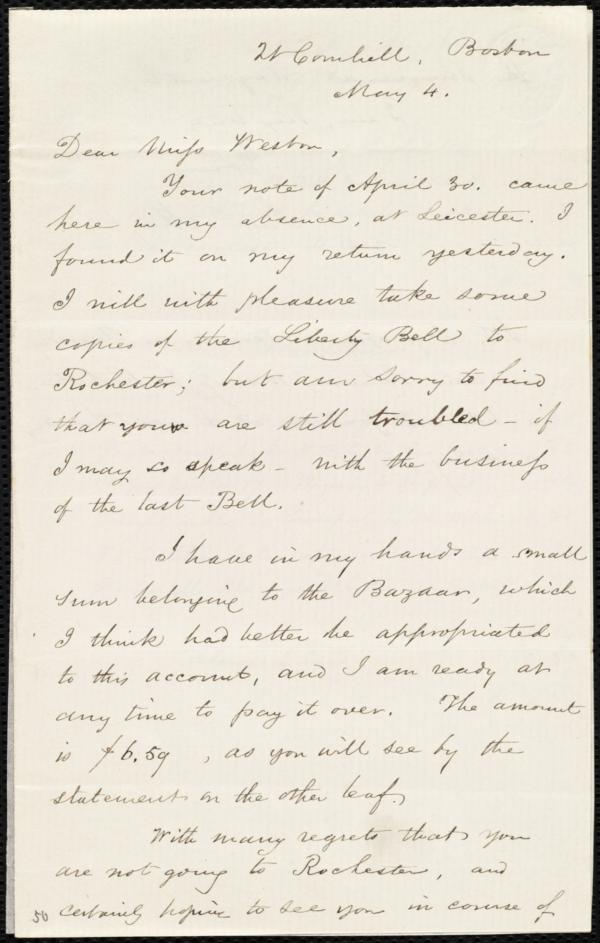 21 Cornhill, Boston
May 4.
Dear Miss Weston,
Your note of April 30. came
here in my absence, at Leicester. I
found it on my return yesterday.
I will with pleasure take some
copies of the Liberty Bell to
Rochester; but am sorry to find
that you are still troubled – if
I may so speak – with the business
of the last Bell.
I have in my hands a small
sum belonging to the Bazaar, which
I think had better be appropriated
to this account, and I am ready at
any time to pay it over. The amount
is $6.59, as you will see by the
statement on the other leaf.
With many regrets that you
are not going to Rochester, and
certainly hoping to see you in course of
50